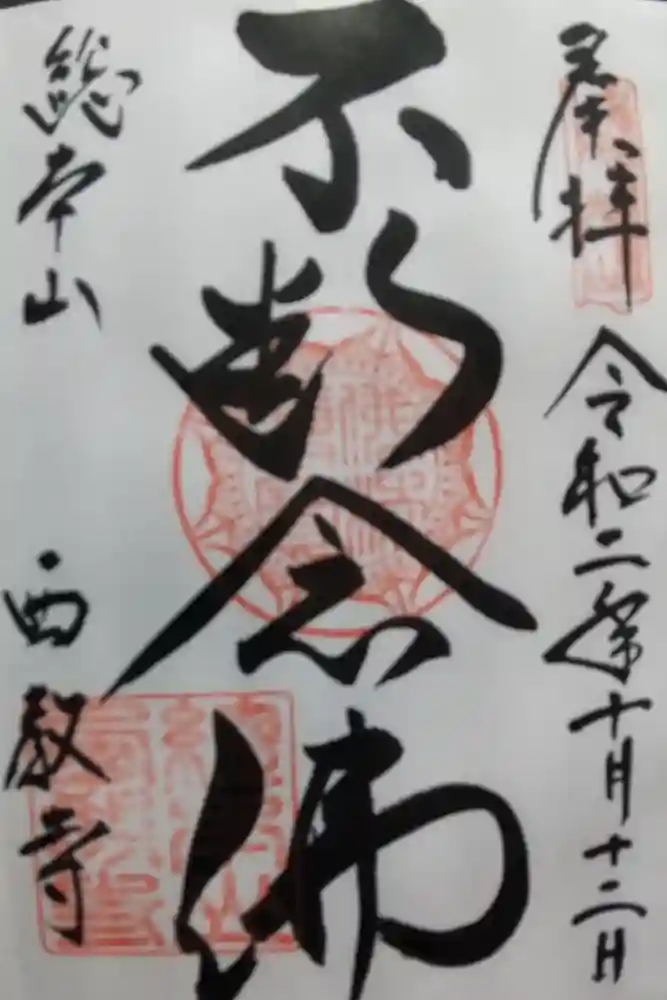 奉拝 令和二年十月十二日
不断念佛
総本山 西教寺